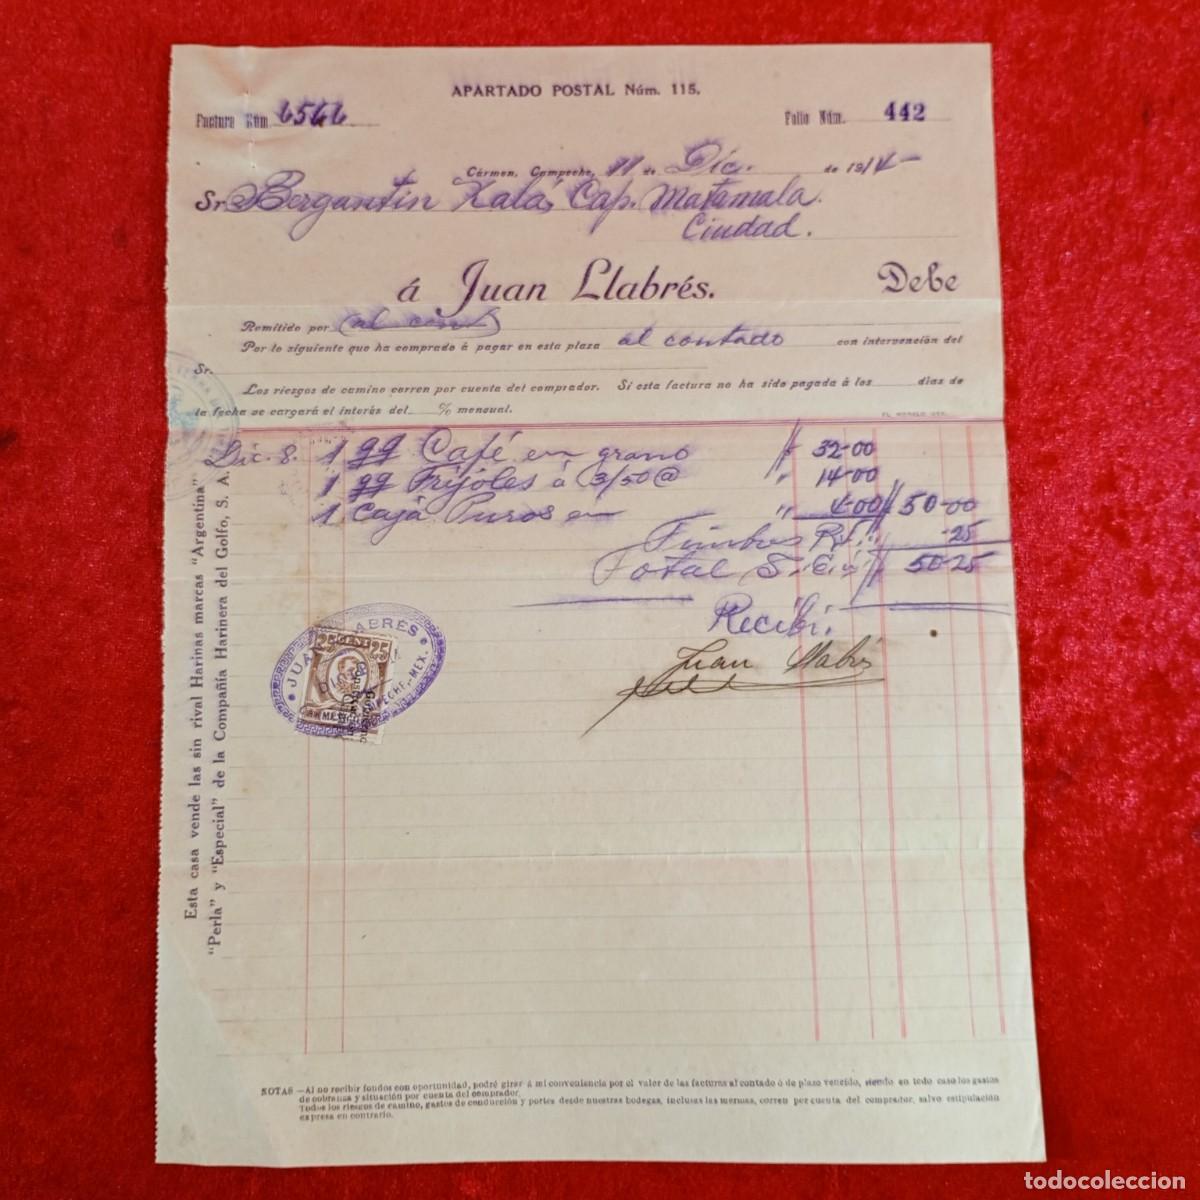 APARTADO POSTAL Núm. 115.
Factura Núm. 6566 Folio Núm. 442
Cármen, Campeche, 11 de Dic. de 1914-
Sr. Bergantin Kalá, Cap. Matamala.
Ciudad.
á Juan Llabrés. Debe
Remitido por
Por lo siguiente que ha comprado á pagar en esta plaza al contado con intervención del
Sr.
Los riesgos de camino corren por cuenta del comprador. Si esta factura no ha sido pagada á los días de
la fecha se cargará el interés del % mensual.
Dic. 8. 1 Café en grano 32-00
1 Frijoles á 3/50 @ " 14-00
1 Caja Puros en " 4-00 50-00
Timbres -25
Total 50-25
Recibí.
Juan Llabrés
JUAN LLABRÉS
25 CENT 25
MEXICO
CAMPECHE, MEX.
Esta casa vende las sin rival Harinas marcas "Argentina"
"Perla" y "Especial" de la Compañía Harinera del Golfo, S. A.
NOTAS—Al no recibir fondos con oportunidad, podré girar á mi conveniencia por el valor de las facturas al contado ó de plazo vencido, siendo en todo caso los gastos
de cobranza y situación por cuenta del comprador.
Todos los riesgos de camino, gastos de conducción y portes desde nuestras bodegas, inclusas las mermas, corren por cuenta del comprador, salvo estipulación
expresa en contrario.
todocoleccion